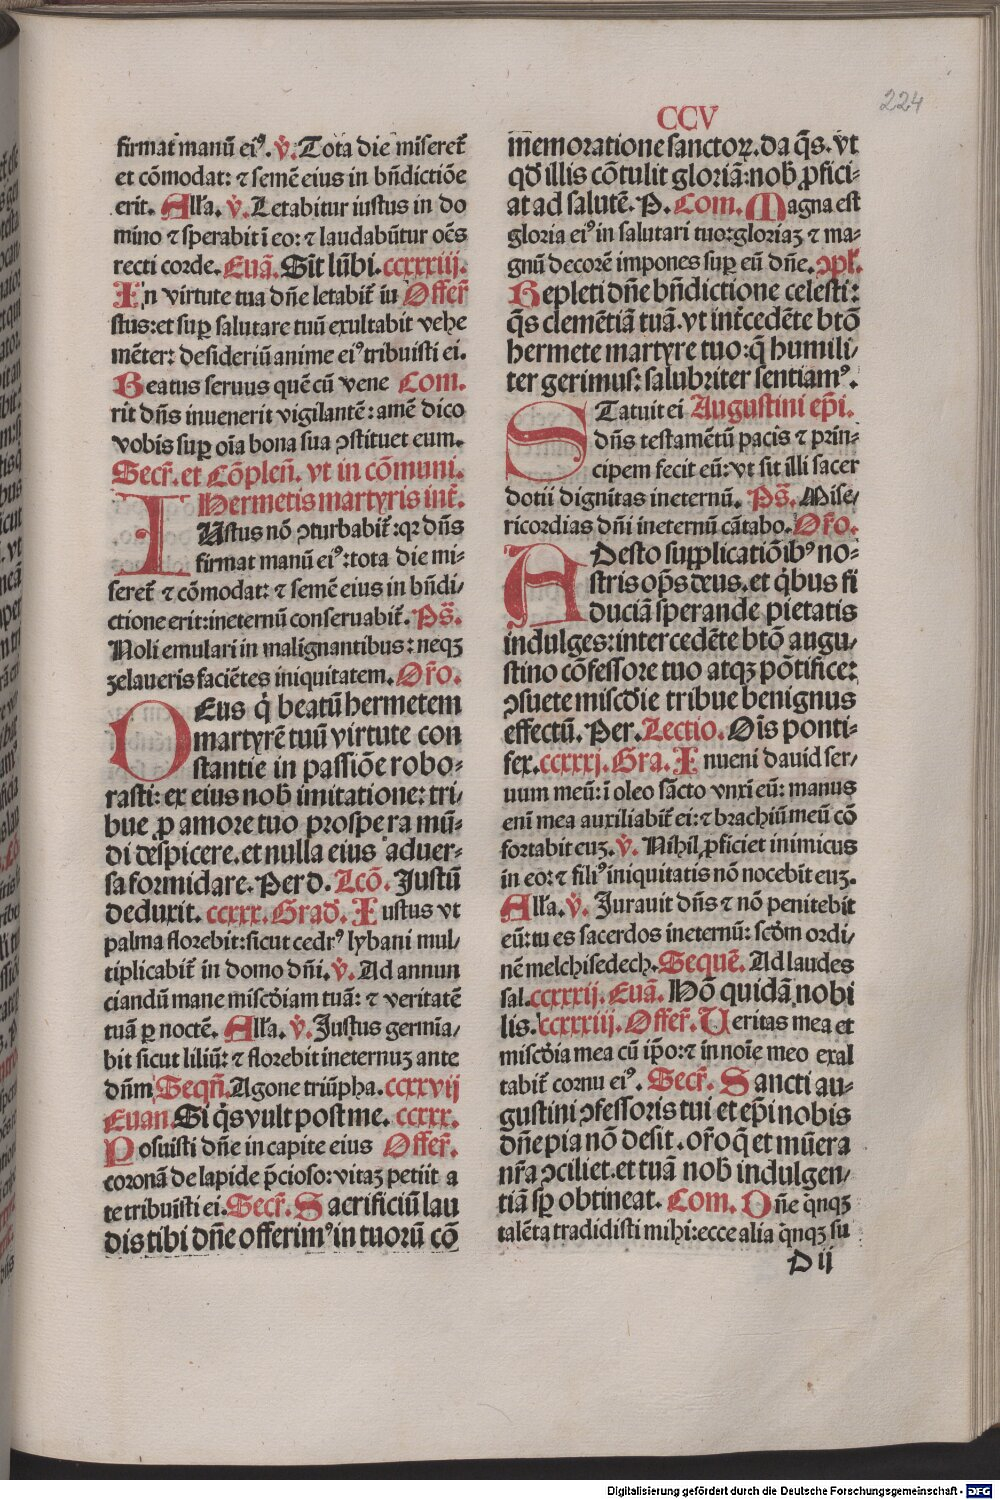 224
CCV
firmat manū eiꝰ. ℣. Tota die miseret̄
et cōmodat: ⁊ semē eius in bn̄dictiōe
erit. Allͣa. ℣. Letabitur iustus in do
mino ⁊ sperabit ī eo: ⁊ laudabūtur oēs
recti corde. Euā. Sīt lūbi. ccxxxiij.
In virtute tua dn̄e letabit̄ iu Offer̄
stus: et suꝑ salutare tuū exultabit vehe
mēter: desideriū anime eiꝰ tribuisti ei.
Beatus seruus quē cū vene Com.
rit dn̄s inuenerit vigilantē: amē dico
vobis suꝑ oīa bona sua ꝯstituet eum.
Secr̄. et Cōplen̄. vt in cōmuni.
Hermetis martyris int̄.
IUstus nō ꝯturbabit̄: qꝛ dn̄s
firmat manū eiꝰ: tota die mi-
seret̄ ⁊ cōmodat: ⁊ semē eius in bn̄di-
ctione erit: ineternū conseruabit̄. Ps̄.
Noli emulari in malignantibus: neqꝫ
zelaueris faciētes iniquitatem. Or̄o.
DEus q̇ beatū hermetem
martyrē tuū virtute con
stantie in passiōe robo-
rasti: ex eius nob̄ imitatione: tri-
bue ꝓ amore tuo prospera mū-
di despicere. et nulla eius aduer-
sa formidare. Per d. Lcō. Justū
deduxit. ccxxx. Grad̄. Iustus vt
palma florebit: sicut cedrꝰ lybani mul-
tiplicabit̄ in domo dn̄i. ℣. Ad annun
ciandū mane misc̄diam tuā: ⁊ veritatē
tuā ꝑ noctē. Allͣa. ℣. Justus germīa-
bit sicut liliū: ⁊ florebit ineternuꝫ ante
dn̄m Seqn̄. Agone triūpha. ccxxvij
Euan Si q̇s vult post me. ccxxx.
Posuisti dn̄e in capite eius Offer̄.
coronā de lapide p̄cioso: vitaꝫ petiit a
te tribuisti ei. Secr̄. Sacrificiū lau
dis tibi dn̄e offerimꝰ in tuorū cō
memoratione sanctoꝝ. da q̄s. vt
qd̄ illis cōtulit gloriā: nob̄ ꝓfici-
at ad salutē. P. Com. Magna est
gloria eiꝰ in salutari tuo: gloriaꝫ ⁊ ma-
gnū decorē impones suꝑ eū dn̄e. ꝯpl̄.
Repleti dn̄e bn̄dictione celesti:
q̄s clemētiā tuā. vt int̄cedēte btō
hermete martyre tuo: q̄ humili-
ter gerimus: salubriter sentiamꝰ.
STatuit ei Augustini ep̄i.
dn̄s testamētū pacis ⁊ prin-
cipem fecit eū: vt sit illi sacer
dotii dignitas ineternū. Ps̄. Mise-
ricordias dn̄i ineternū cātabo. Or̄o.
ADesto supplicatiōibꝰ no-
stris op̄s deus. et q̇bus fi
duciā sperande pietatis
indulges: intercedēte btō augu-
stino cōfessore tuo atqꝫ pōtifice:
ꝯsuete misc̄die tribue benignus
effectū. Per. Lectio. Oīs ponti-
fex. ccxxxj. Gra. Inueni dauid ser-
uum meū: ī oleo sācto vnxi eū: manus
enī mea auxiliabit̄ ei: ⁊ brachiū meū cō
fortabit euꝫ. ℣. Nihil ꝓficiet inimicus
in eo: ⁊ filiꝰ iniquitatis nō nocebit euꝫ.
Allͣa. ℣. Jurauit dn̄s ⁊ nō penitebit
eū: tu es sacerdos ineternū: scd̄m ordi-
nē melchisedech. Sequē. Ad laudes
sal. ccxxxij. Euā. Hō quidā nobi
lis. ccxxxiij. Offer̄. Ueritas mea et
misc̄dia mea cū ip̄o: ⁊ in noīe meo exal
tabit̄ cornu eiꝰ. Secr̄. Sancti au-
gustini ꝯfessoris tui et ep̄i nobis
dn̄e pia nō desit. or̄o q̄ et mūera
nr̄a ꝯciliet. et tuā nob̄ indulgen-
tiā sꝑ obtineat. Com. Dn̄e q̇nqꝫ
talēta tradidisti mihi: ecce alia q̇nqꝫ su
D ij
Digitalisierung gefördert durch die Deutsche Forschungsgemeinschaft - DFG